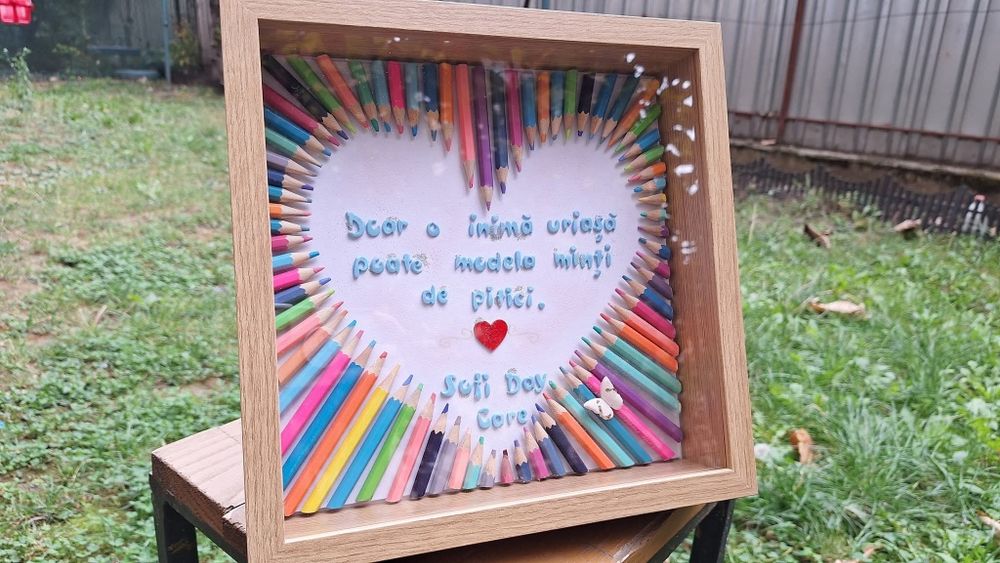 Doar o inimă uriașă
poate modela minți
de pitici.
Sofi Day
Care